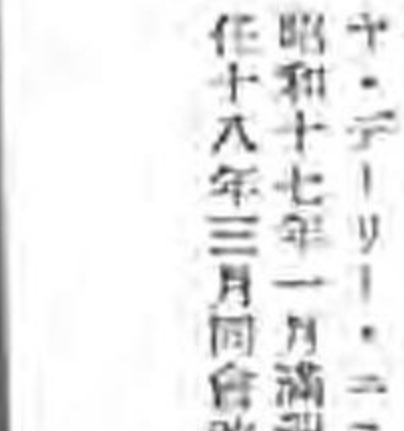 ヤ・デーリー・ニ
昭和十七年一月滿
任十八年三月同會